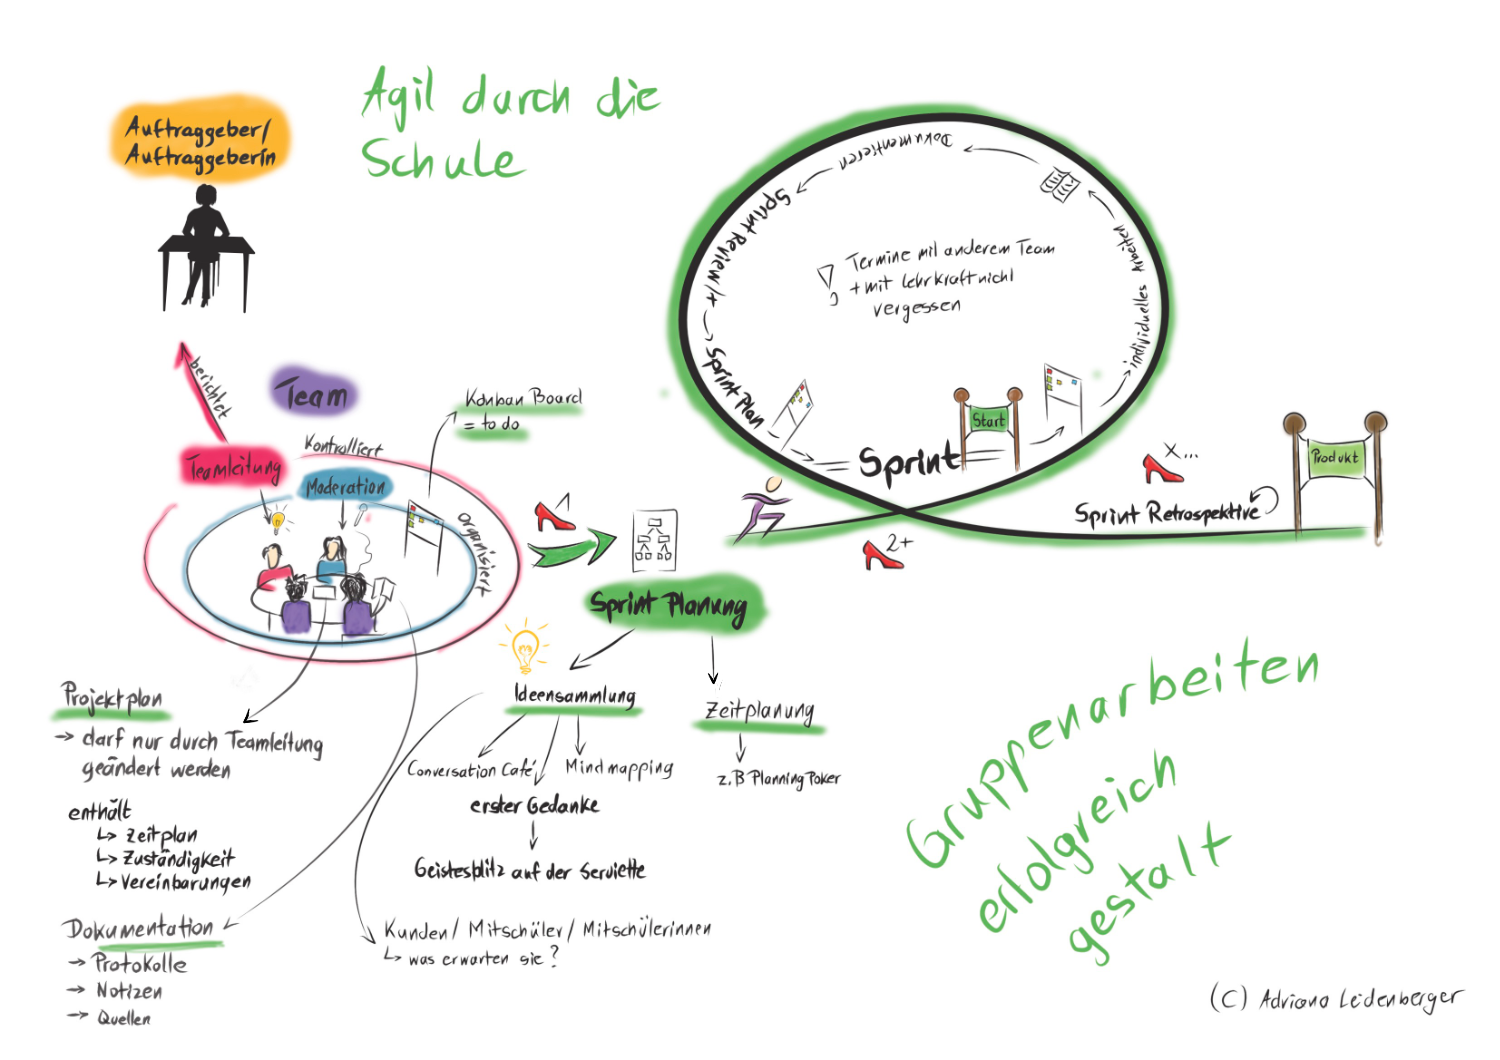 Agil durch die
Schule
Auftraggeber/
Auftraggeberin
berichtet
Team
Teamleitung
Kontrolliert
Moderation
organisiert
Kanban Board
= to do
1
Sprint Planung
Ideensammlung
Conversation Café
Mind mapping
erster Gedanke
Geistesplitz auf der Serviette
Zeitplanung
z.B Planning Poker
Kunden/ Mitschüler/ Mitschülerinnen
↳ was erwarten sie?
Projektplan
→ darf nur durch Teamleitung
geändert werden
enthält
↳ Zeitplan
↳ Zuständigkeit
↳ Vereinbarungen
Dokumentation
→ Protokolle
→ Notizen
→ Quellen
Sprint
Start
individuelles Arbeiten
Dokumentieren
Sprint Review/+
Sprint Plan
Termine mit anderem Team
+ mit Lehrkraft nicht
vergessen
2+
x...
Sprint Retrospektive
Produkt
Gruppenarbeiten
erfolgreich
gestalt
(C) Adriana Leidenberger